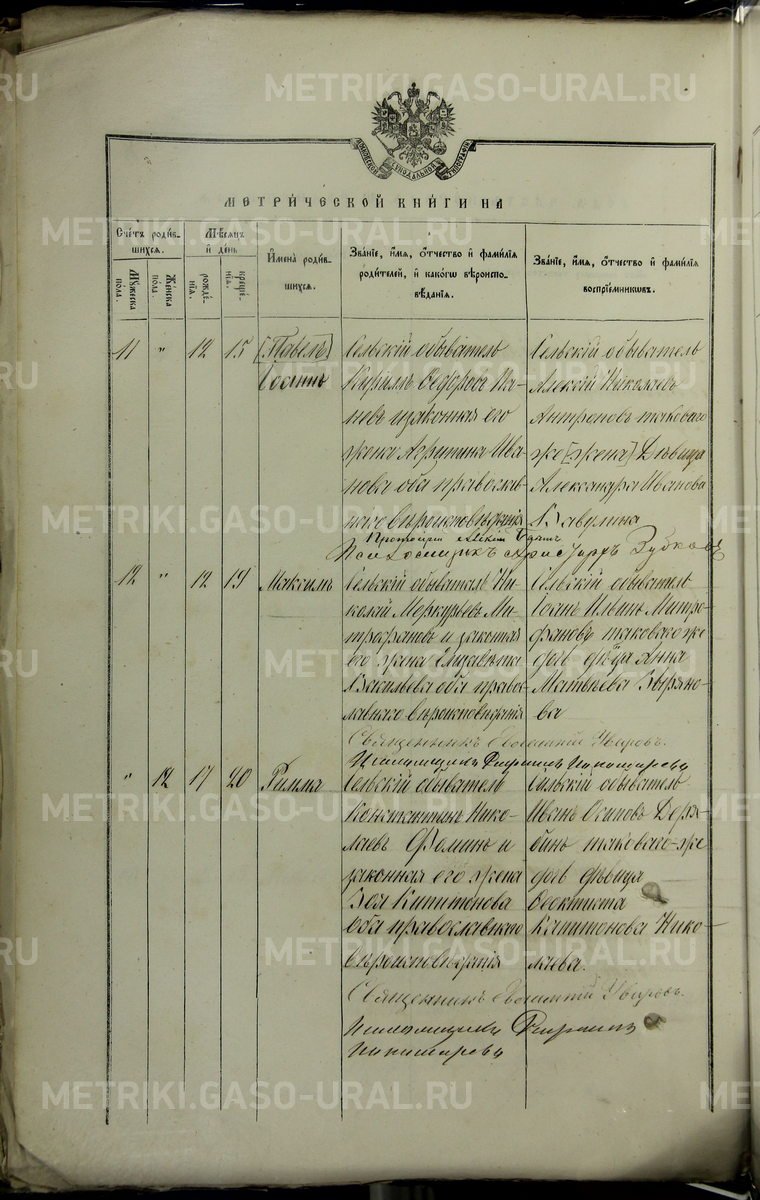 METRIKI.GASO-URAL.RU
МОСКОВСКОЙ СѴНОДАЛЬНОЙ ТИПОГРАФІИ
МЕТРИ́ЧЕСКОЙ КНИ́ГИ НА
Сче́тъ роди́в-
шихся.
Му́жеска пола.
Же́нска по́ла.
Мѣ́сяцъ
и҆ де́нь
рожде́-
нїѧ.
креще́-
нїѧ.
И҆мена̀ роди́в-
шихся.
Зва́нїе, и҆́мѧ, ѻ҆́тчество и҆ фами́лїѧ
роди́телей, и҆ како́гѡ вѣроиспо-
вѣ́данїѧ.
Зва́нїе, и҆́мѧ, ѻ҆́тчество и҆ фами́лїѧ
воспрїе́мникѡвъ.
11 " 12 15 [Павелъ]
Іоаннъ
Сельскій обыватель
Кириллъ Ѳедоровъ Па-
новъ и законная его
жена Агрипина Ива-
нова оба православ-
наго вѣроисповѣданія
Сельскій обыватель
Алексѣй Николаевъ
Антроповъ таковаго
же [жена] Дѣвица
Александра Иванова
Вавулина
Псаломщикъ Зубковъ
12 " 12 19 Максимъ
Сельскій обыватель Ни-
колай Меркурьевъ Ми-
трофановъ и законная
его жена Елизавета
Васильева оба право-
славнаго вѣроисповѣданія
Сельскій обыватель
Іоаннъ Ильинъ Митро-
фановъ таковаго же
дочь дѣвица Анна
Матвѣева Зыряно-
ва
Священникъ Уваровъ.
Псаломщикъ
" 12 17 20 Римма
Сельскій обыватель
Константинъ Нико-
лаевъ Ѳоминъ и
законная его жена
Зоя Капитонова
оба православнаго
вѣроисповѣданія
Сельскій обыватель
Иванъ Осиповъ Деря-
бинъ таковаго-же
дочь дѣвица
Ѳеоктиста
Капитонова Нико-
лаева.
Священникъ Уваровъ.
Псаломщикъ